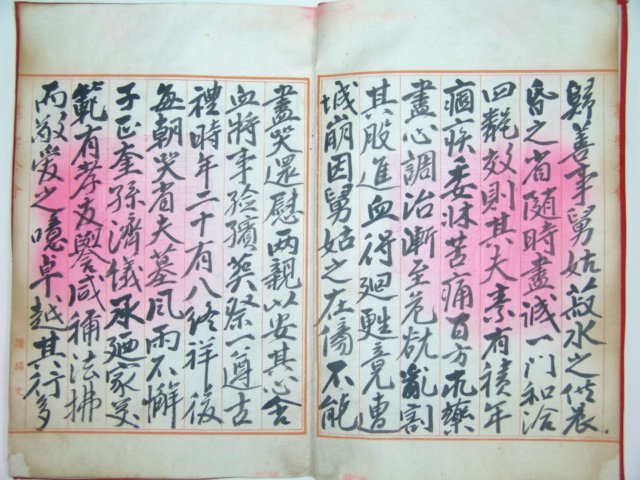 歸善事舅姑菽水之供晨
昏之省随時盡誠一門和洽
四效則其夫素有積年
痼疾委牀苦痛百方求藥
盡心調治漸至危割
其股進血得廻甦竟遭
城崩因舅姑之在傍不能
盡哭還慰兩親以安其心含
血將事殮殯葬祭一遵古
禮時年二十有八終祥後
每朝哭省夫墓風雨不懈
子正奎孫濟儀承廼家美
範有孝友譽咸稱法拂
而敬愛之噫卓越其行多
讚揚文